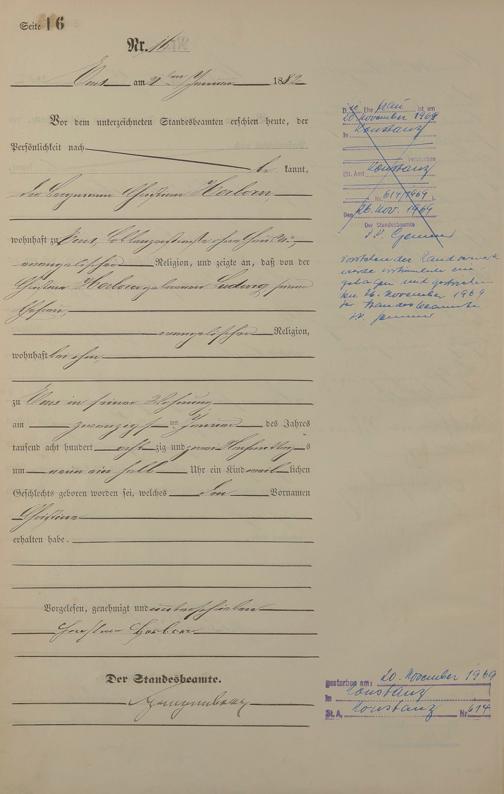 Seite 16
Nr. 16
Ems am 2ten Januar 1882
Vor dem unterzeichneten Standesbeamten erschien heute, der
Persönlichkeit nach
be kannt,
der Bergmann Christian Herborn
wohnhaft zu Ems, Coblenzerstraße ohne
evangelischer Religion, und zeigte an, daß von der
Herborn geborenen Ludwig seiner
Ehefrau
evangelischer Religion,
wohnhaft bei ihm
zu Ems in seiner Wohnung
am Januar des Jahres
tausend acht hundert acht zig und zwei Nachmittags
um neun ein halb Uhr ein Kind weib lichen
Geschlechts geboren worden sei, welches den Vornamen
Christina
erhalten habe.
Vorgelesen, genehmigt und unterschrieben
Christian Herborn
Der Standesbeamte.
D. Ehe frau ist am
20. November 1969
in Konstanz
verstorben
(St. Amt Konstanz
Nr. 614/1969)
Den 26. Nov. 1969
Der Standesbeamte
I.V.
Vorstehender Randvermerk
wurde
und gestrichen
den 26. November 1969
Der Standesbeamte
I.V.
gestorben am: 20. November 1969
in Konstanz
St.A. Konstanz Nr 614